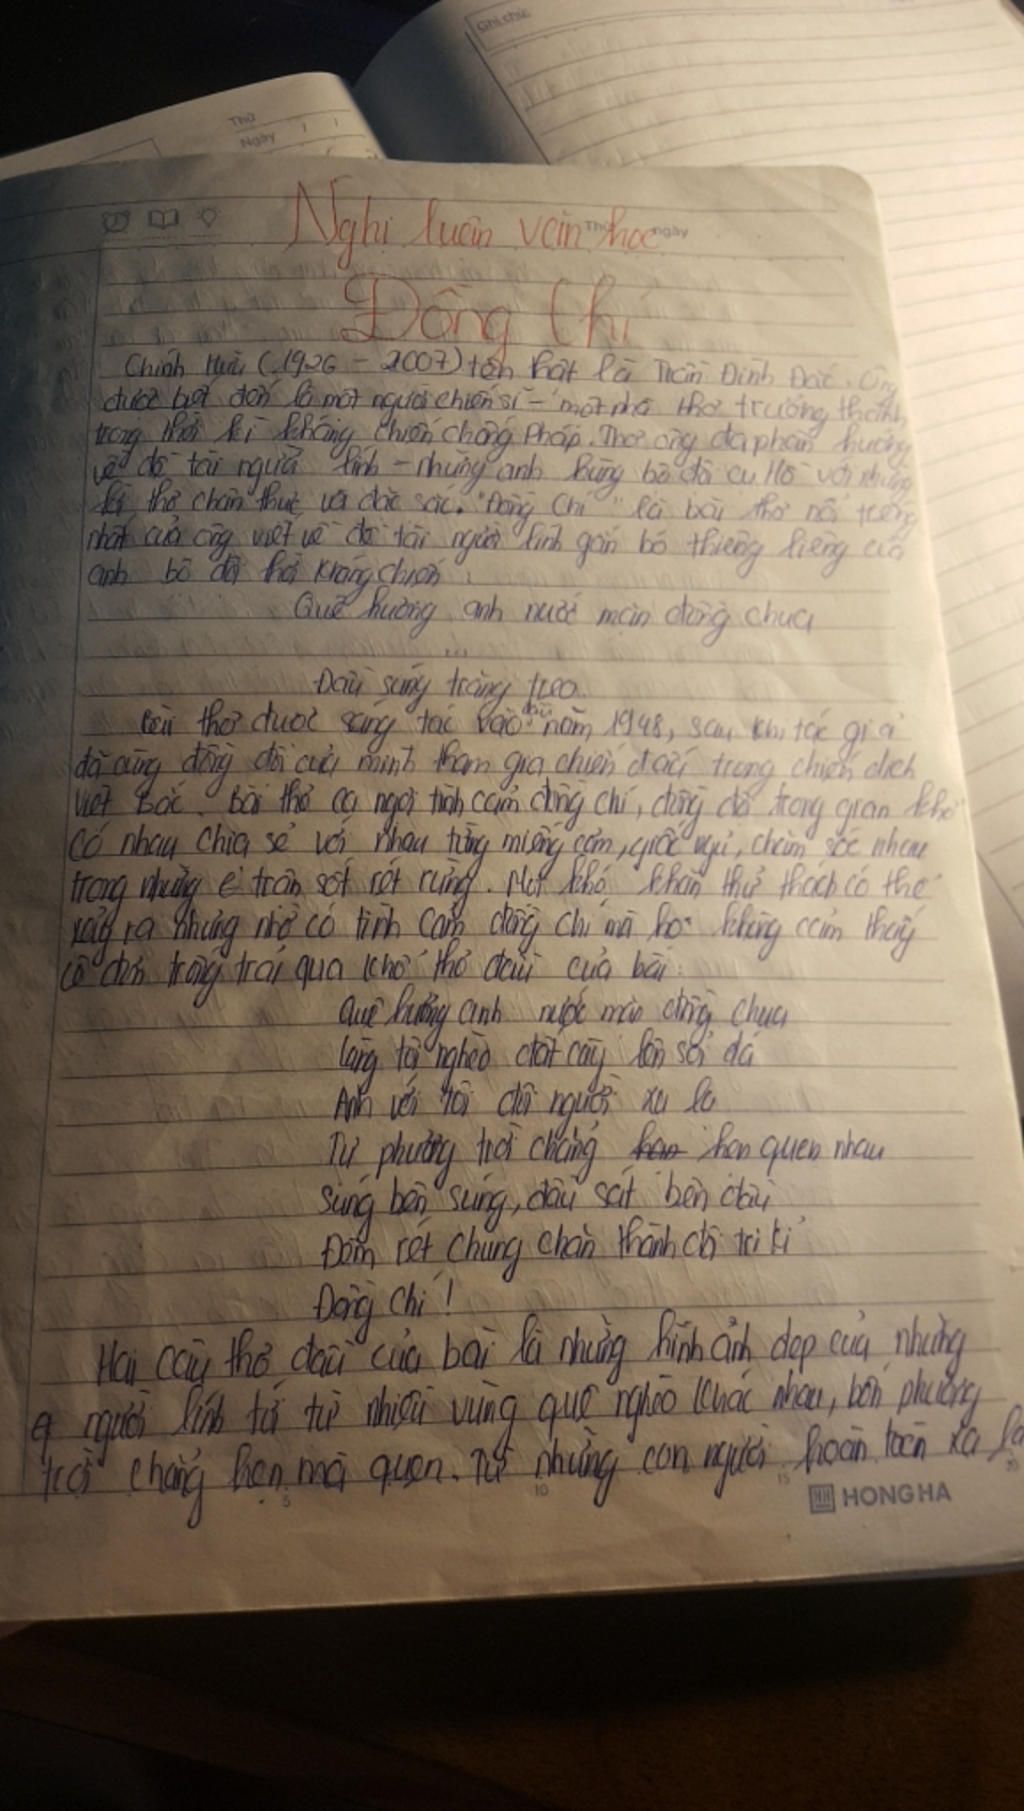 Ghi chú:
Thứ
Ngày / /
Nghị luận văn học
Thứ ngày
Đồng Chí
Chính Hữu (1926 - 2007) tên thật là Trần Đình Đắc. Ông
được biết đến là một người chiến sĩ - một nhà thơ trưởng thành
trong thời kì kháng chiến chống Pháp. Thơ ông đa phần hướng
về đề tài người lính - những anh hùng bộ đội cụ Hồ với những
thơ chân thực và đặc sắc. "Đồng Chí" là bài thơ nổi tiếng
nhất của ông viết về đề tài người lính gắn bó thiêng liêng của
anh bộ đội thời kháng chiến.
Quê hương anh nước mặn đồng chua
...
Đầu súng trăng treo.
Bài thơ được sáng tác vào đầu năm 1948, sau khi tác giả
đã cùng đồng đội của mình tham gia chiến đấu trong chiến dịch
Việt Bắc. Bài thơ ca ngợi tình cảm đồng chí, đồng đội trong gian khổ
có nhau chia sẻ với nhau từng miếng cơm, giấc ngủ, chăm sóc nhau
trong những trận sốt rét rừng. Mọi khó khăn thử thách có thể
xảy ra nhưng nhờ có tình cảm đồng chí mà họ không cảm thấy
cô đơn trống trải qua khổ thơ đầu của bài:
Quê hương anh nước mặn đồng chua
Làng tôi nghèo đất cày lên sỏi đá
Anh với tôi đôi người xa lạ
Tự phương trời chẳng hẹn quen nhau
Súng bên súng, đầu sát bên đầu
Đêm rét chung chăn thành đôi tri kỉ
Đồng Chí!
Hai câu thơ đầu của bài là những hình ảnh đẹp của những
người lính tới từ nhiều vùng quê nghèo khác nhau, bốn phương
trời chẳng hẹn mà quen. Từ những con người hoàn toàn xa lạ
5 10 15 20
HH HONG HA